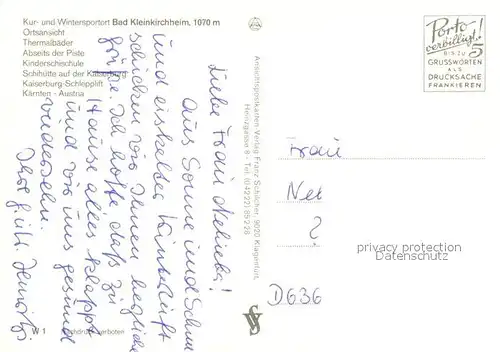 Kur- und Wintersportort Bad Kleinkirchheim, 1070 m
Ortsansicht
Thermalbäder
Abseits der Piste
Kinderschischule
Schihütte auf der Kaiserburg
Kaiserburg-Schlepplift
Kärnten - Austria
Liebe Frau
Aus Sonne und Schnee
und eiskalter Winterluft
schicken wir Ihnen herzliche
Grüße. Ich hoffe daß zu
Hause alles klappt
und wir uns gesund
wiedersehn.
Ihre
W 1
verboten
Ansichtspostkarten-Verlag Franz Schilcher, 9020 Klagenfurt,
Tel. (0 42 22) 85 2 26
Porto
verbilligt!
BIS ZU 5
GRUSSWORTEN
ALS
DRUCKSACHE
FRANKIEREN
Frau
?
privacy protection
oldthing.de
D636